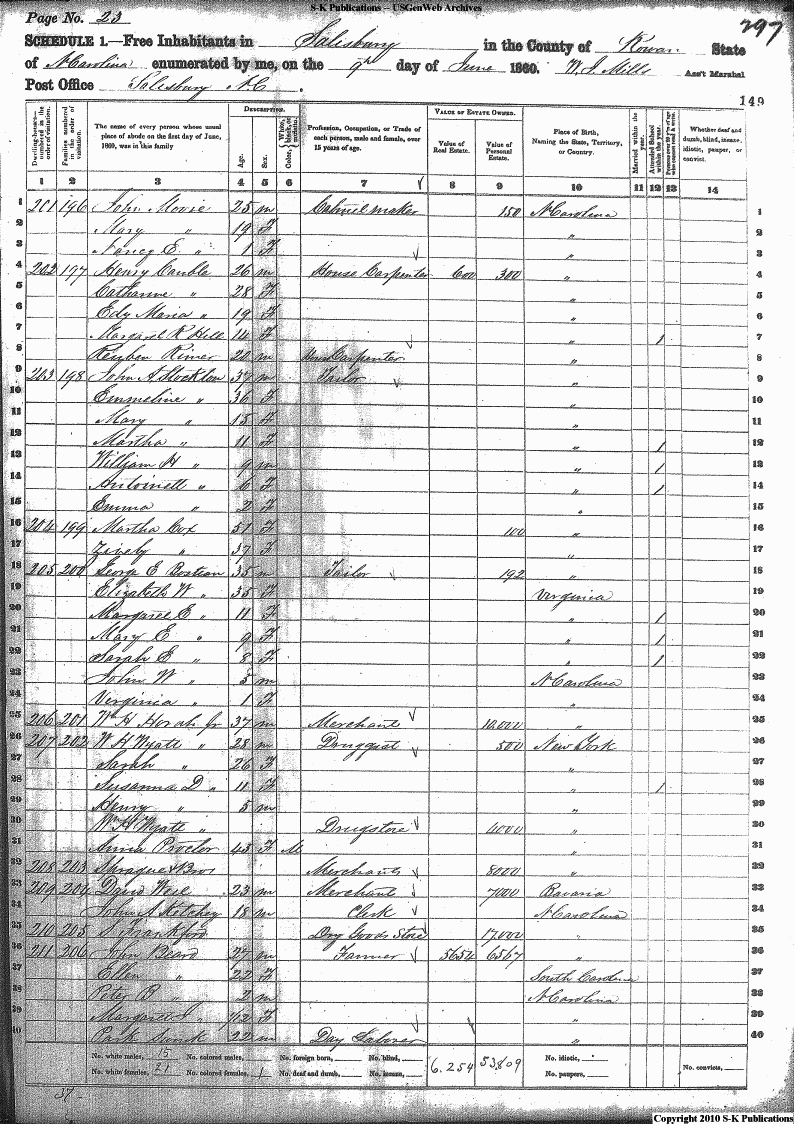 S-K Publications – USGenWeb Archives
Page No. 23
297
SCHEDULE 1.—Free Inhabitants in Salisbury in the County of Rowan State
of N Carolina enumerated by me, on the 9th day of June 1860. W. J. Mills Ass't Marshal
Post Office Salisbury N.C.
149
Dwelling-houses numbered in the order of visitation.
Families numbered in the order of visitation.
The name of every person whose usual place of abode on the first day of June, 1860, was in this family
DESCRIPTION.
Age.
Sex.
Color, White, black, or mulatto.
Profession, Occupation, or Trade of each person, male and female, over 15 years of age.
VALUE OF ESTATE OWNED.
Value of Real Estate.
Value of Personal Estate.
Place of Birth, Naming the State, Territory, or Country.
Married within the year.
Attended School within the year.
Persons over 20 y'rs of age who cannot read & write.
Whether deaf and dumb, blind, insane, idiotic, pauper, or convict.
1 2 3 4 5 6 7 8 9 10 11 12 13 14
1 201 196 John Moore 25 m Cabinet maker 150 N Carolina 1
2 Mary " 19 F " 2
3 Nancy E. " 1 F " 3
4 202 197 Henry Cauble 26 m House Carpenter 600 300 " 4
5 Catharine " 28 F " 5
6 Edy Maria " 19 F " 6
7 Margaret R Hill 14 F " / 7
8 Reuben Rimer 20 m House Carpenter " 8
9 203 198 John A Stockton 37 m Tailor " 9
10 Emmeline " 36 F " 10
11 Mary " 15 F " 11
12 Martha " 11 F " / 12
13 William H " 9 m " / 13
14 Antoinett " 6 F " / 14
15 Emma " 2 F " 15
16 204 199 Martha Cox 51 F 100 " 16
17 Zively " 37 F " 17
18 205 200 Georg E Bostian 35 m Tailor 192 " 18
19 Elizabeth W " 35 F Virginia 19
20 Margaret E " 11 F " / 20
21 Mary E " 9 F " / 21
22 Sarah E " 8 F " / 22
23 John W " 5 m N Carolina 23
24 Virginia " 1 F " 24
25 206 201 W H Horah Jr 37 m Merchant 10,000 " 25
26 207 202 W H Wyatt " 28 m Druggist 500 New York 26
27 Sarah " 26 F " 27
28 Susanna D " 11 F " / 28
29 Henry " 5 m " 29
30 Wm H Wyatt " Drugstore 4000 " 30
31 Annia Proctor 45 F M " 31
32 208 203 Sprague & Bros Merchants 8000 " 32
33 209 204 David Weil 23 m Merchant 7000 Bavaria 33
34 John A Ketchey 18 m Clerk N Carolina 34
35 210 205 S Frankford Dry Goods Store 17,000 " 35
36 211 206 Beard 27 m Farmer 5654 6567 " 36
37 Ellen " 22 F South Carolina 37
38 Peter B " 2 m N Carolina 38
39 Margaret " /12 F " 39
40 Park 22 m Day Laborer " 40
No. white males, 15 No. colored males, No. foreign born, No. blind,
No. white females, 21 No. colored females, 1 No. deaf and dumb, No. insane,
6.254 53,809
No. idiotic, No. paupers, No. convicts,
37
Copyright 2010 S-K Publications